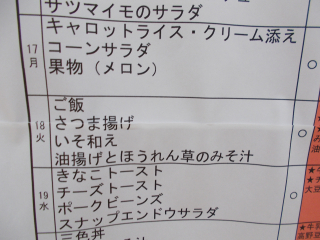 サツマイモのサラダ
キャロットライス・クリーム添え
17
月
コーンサラダ
果物（メロン）
ご飯
18
火
さつま揚げ
いそ和え
油揚げとほうれん草のみそ汁
きなこトースト
19
水
チーズトースト
ポークビーンズ
スナップエンドウサラダ
三色丼